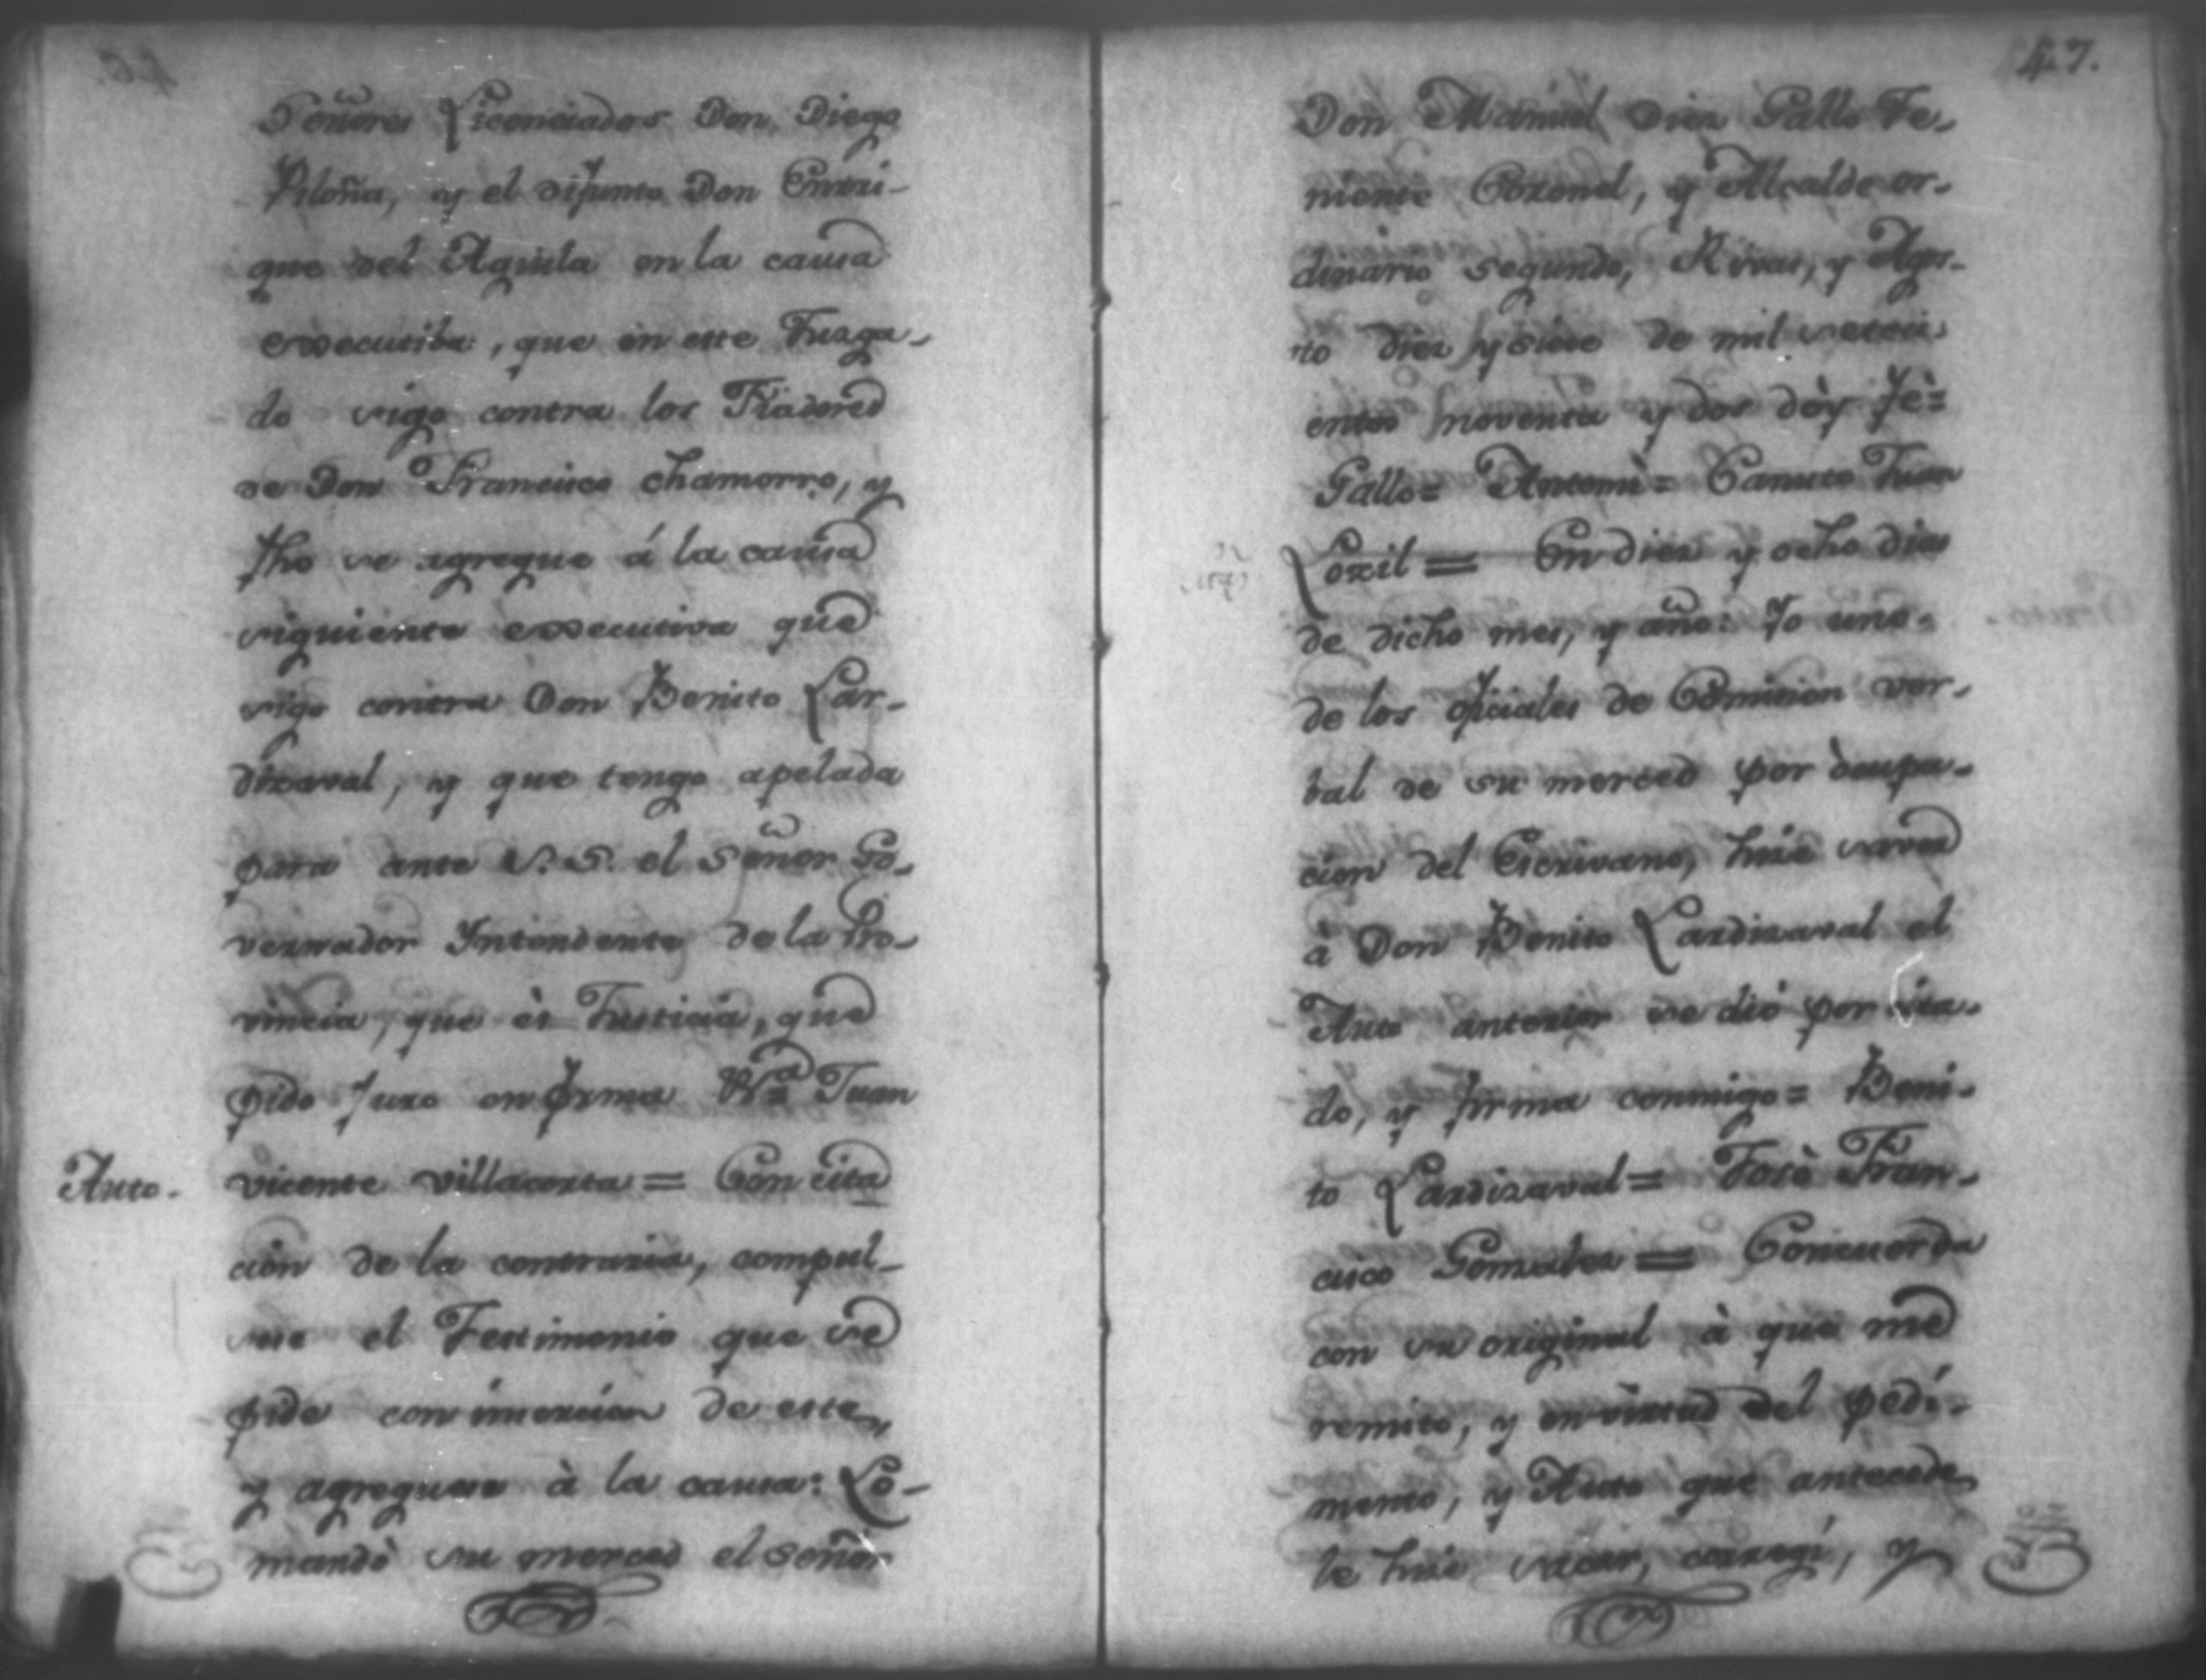 Señores Licenciados Don Diego
Piloña, y el difunto Don Enrri-
que del Aguila en la causa
executiba, que en este Juzga-
do sigo contra los Fiadores
de Don Francisco Chamorro, y
fho se agregue á la causa
siguiente executiva que
sigo contra Don Benito Lar-
dizaval, y que tengo apelada
para ante S.S. el Señor Go-
vernador Yntendente de la Pro-
vincia, que ès Justicia, que
pido Juro en forma Juan
Auto.
vicente villacorta = Con cita
ción de la contraria, compul-
sese el Testimonio que se
pide con incercion de este,
y agreguese à la causa: Lo-
mandò su merced el señor
47.
Don Manuel Diez Gallo Te-
niente Coronel, y Alcalde or-
dinario segundo, Rivas, y Agos-
to diez y siete de mil seteci-
entos noventa y dos dòy fè=
Gallo= Antemì= Canuto Juan
Loxil = En diez y ocho dias
de dicho mes, y año: Yo uno-
de los oficiales de Comicion ver-
bal de su merced por òcupa-
cion del Escrivano, hise saver
à Don Benito Lardizaval el
Auto anterior se diò por cita-
do, y firma conmigo= Beni-
to Lardizaval= Josè Fran-
cisco Gonzalez = Concuerda
con su original à que me
remito, y en virtud del pedi-
mento, y Auto que antecede
le hise sacar, corregí, y